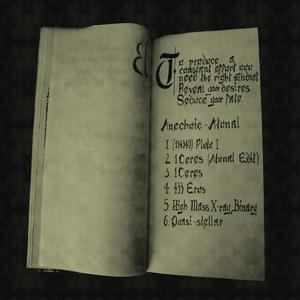 To produce a
constant effort you
need the right mindset
Reveal your desires
Seduce your fate.
Anechoic - Atonal
1 (134340) Pluto I
2. 1 Ceres (Atonal Edit)
3. 1 Ceres
4. 433 Eros
5. High Mass X-ray Binary
6. Quasi-stellar